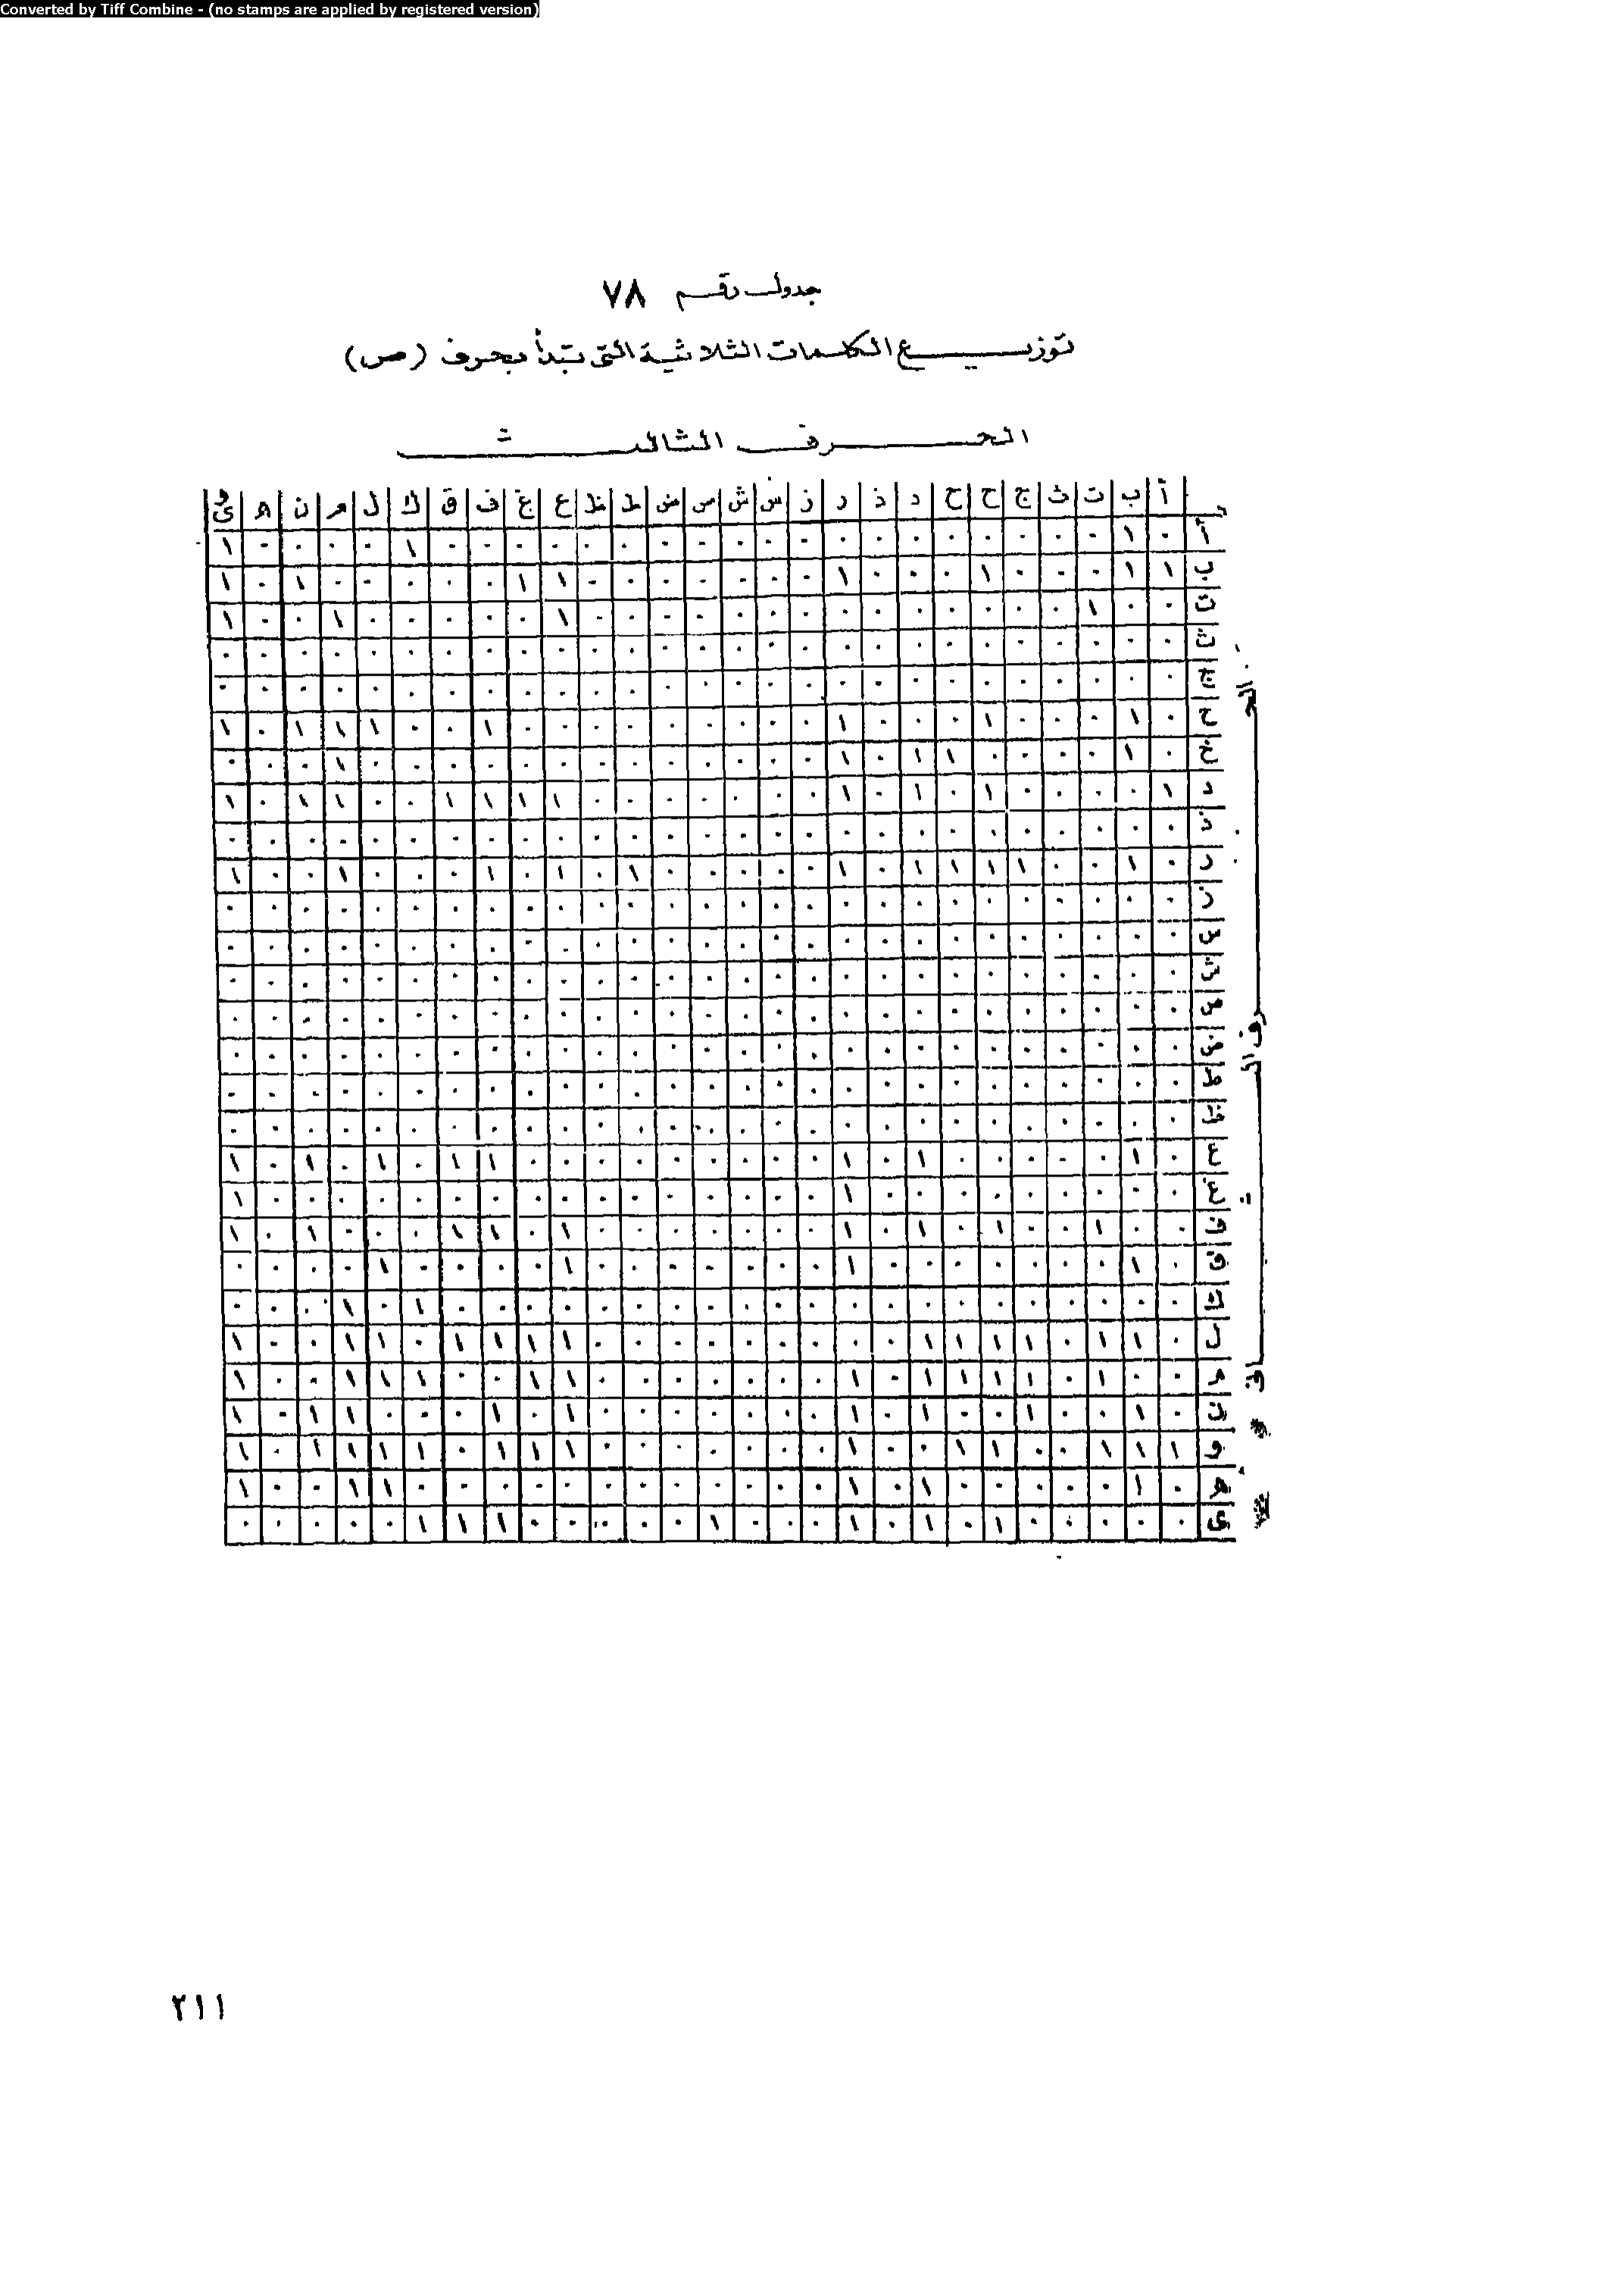 Converted by Tiff Combine - (no stamps are applied by registered version)
جدول رقم ٧٨
توزيع الكلمات الثلاثية التى تبدأ بحرف (ص)
الحرف الثالث
أ ب ت ث ج ح ح د ذ ر ز س ش ص ض ط ظ ع غ ف ق ك ل م ن ه و ى
أ ٠ ١ ٠ ٠ ٠ ٠ ٠ ٠ ٠ ٠ ٠ ٠ ٠ ٠ ٠ ٠ ٠ ٠ ٠ ٠ ٠ ١ ٠ ٠ ٠ ٠ ١
ب ١ ١ ٠ ٠ ٠ ١ ٠ ٠ ٠ ١ ٠ ٠ ٠ ٠ ٠ ٠ ٠ ١ ١ ٠ ٠ ٠ ٠ ٠ ١ ٠ ١
ت ٠ ٠ ١ ٠ ٠ ٠ ٠ ٠ ٠ ٠ ٠ ٠ ٠ ٠ ٠ ٠ ٠ ١ ٠ ٠ ٠ ٠ ٠ ١ ٠ ٠ ١
ث ٠ ٠ ٠ ٠ ٠ ٠ ٠ ٠ ٠ ٠ ٠ ٠ ٠ ٠ ٠ ٠ ٠ ٠ ٠ ٠ ٠ ٠ ٠ ٠ ٠ ٠ ٠
ج ٠ ٠ ٠ ٠ ٠ ٠ ٠ ٠ ٠ ٠ ٠ ٠ ٠ ٠ ٠ ٠ ٠ ٠ ٠ ٠ ٠ ٠ ٠ ٠ ٠ ٠ ٠
ح ٠ ١ ٠ ٠ ٠ ١ ٠ ٠ ٠ ١ ٠ ٠ ٠ ٠ ٠ ٠ ٠ ٠ ٠ ١ ٠ ٠ ١ ١ ١ ٠ ١
خ ٠ ١ ٠ ٠ ٠ ٠ ١ ١ ٠ ١ ٠ ٠ ٠ ٠ ٠ ٠ ٠ ٠ ٠ ٠ ٠ ٠ ٠ ١ ٠ ٠ ٠
د ١ ٠ ٠ ٠ ٠ ١ ٠ ١ ٠ ١ ٠ ٠ ٠ ٠ ٠ ٠ ٠ ١ ١ ١ ١ ٠ ٠ ١ ١ ٠ ١
ذ ٠ ٠ ٠ ٠ ٠ ٠ ٠ ٠ ٠ ٠ ٠ ٠ ٠ ٠ ٠ ٠ ٠ ٠ ٠ ٠ ٠ ٠ ٠ ٠ ٠ ٠ ٠
ر ٠ ١ ٠ ٠ ١ ١ ١ ١ ٠ ١ ٠ ٠ ٠ ٠ ٠ ١ ٠ ١ ٠ ١ ٠ ٠ ٠ ١ ٠ ٠ ١
ز ٠ ٠ ٠ ٠ ٠ ٠ ٠ ٠ ٠ ٠ ٠ ٠ ٠ ٠ ٠ ٠ ٠ ٠ ٠ ٠ ٠ ٠ ٠ ٠ ٠ ٠ ٠
س ٠ ٠ ٠ ٠ ٠ ٠ ٠ ٠ ٠ ٠ ٠ ٠ ٠ ٠ ٠ ٠ ٠ ٠ ٠ ٠ ٠ ٠ ٠ ٠ ٠ ٠ ٠
ش ٠ ٠ ٠ ٠ ٠ ٠ ٠ ٠ ٠ ٠ ٠ ٠ ٠ ٠ ٠ ٠ ٠ ٠ ٠ ٠ ٠ ٠ ٠ ٠ ٠ ٠ ٠
ص ٠ ٠ ٠ ٠ ٠ ٠ ٠ ٠ ٠ ٠ ٠ ٠ ٠ ٠ ٠ ٠ ٠ ٠ ٠ ٠ ٠ ٠ ٠ ٠ ٠ ٠ ٠
ض ٠ ٠ ٠ ٠ ٠ ٠ ٠ ٠ ٠ ٠ ٠ ٠ ٠ ٠ ٠ ٠ ٠ ٠ ٠ ٠ ٠ ٠ ٠ ٠ ٠ ٠ ٠
ط ٠ ٠ ٠ ٠ ٠ ٠ ٠ ٠ ٠ ٠ ٠ ٠ ٠ ٠ ٠ ٠ ٠ ٠ ٠ ٠ ٠ ٠ ٠ ٠ ٠ ٠ ٠
ظ ٠ ٠ ٠ ٠ ٠ ٠ ٠ ٠ ٠ ٠ ٠ ٠ ٠ ٠ ٠ ٠ ٠ ٠ ٠ ٠ ٠ ٠ ٠ ٠ ٠ ٠ ٠
ع ٠ ١ ٠ ٠ ٠ ٠ ٠ ١ ٠ ١ ٠ ٠ ٠ ٠ ٠ ٠ ٠ ٠ ٠ ١ ١ ٠ ١ ٠ ١ ٠ ١
غ ٠ ٠ ٠ ٠ ٠ ٠ ٠ ٠ ٠ ١ ٠ ٠ ٠ ٠ ٠ ٠ ٠ ٠ ٠ ٠ ٠ ٠ ٠ ٠ ٠ ٠ ١
ف ٠ ٠ ١ ٠ ٠ ١ ٠ ١ ٠ ١ ٠ ٠ ٠ ٠ ٠ ٠ ٠ ١ ٠ ١ ١ ٠ ٠ ٠ ١ ٠ ١
ق ٠ ١ ٠ ٠ ٠ ٠ ٠ ٠ ٠ ١ ٠ ٠ ٠ ٠ ٠ ٠ ٠ ١ ٠ ٠ ٠ ٠ ١ ٠ ٠ ٠ ٠
ك ٠ ٠ ٠ ٠ ٠ ٠ ٠ ٠ ٠ ٠ ٠ ٠ ٠ ٠ ٠ ٠ ٠ ٠ ٠ ٠ ٠ ١ ٠ ١ ٠ ٠ ٠
ل ٠ ١ ١ ٠ ١ ١ ١ ١ ٠ ٠ ٠ ٠ ٠ ٠ ٠ ٠ ٠ ١ ١ ١ ١ ٠ ١ ١ ٠ ٠ ١
م ٠ ٠ ١ ٠ ١ ١ ١ ١ ٠ ١ ٠ ٠ ٠ ٠ ٠ ٠ ٠ ١ ١ ٠ ٠ ١ ١ ١ ٠ ٠ ١
ن ٠ ١ ٠ ٠ ١ ٠ ٠ ١ ٠ ١ ٠ ٠ ٠ ٠ ٠ ٠ ٠ ١ ٠ ١ ٠ ٠ ٠ ١ ١ ٠ ١
و ١ ١ ١ ٠ ٠ ١ ١ ٠ ٠ ١ ٠ ٠ ٠ ٠ ٠ ٠ ٠ ١ ١ ١ ٠ ١ ١ ١ ١ ٠ ١
ه ٠ ١ ٠ ٠ ٠ ٠ ٠ ١ ٠ ١ ٠ ٠ ٠ ٠ ٠ ٠ ٠ ٠ ٠ ٠ ٠ ٠ ١ ١ ٠ ٠ ١
ي ٠ ٠ ٠ ٠ ٠ ١ ٠ ١ ٠ ١ ٠ ٠ ٠ ١ ٠ ٠ ٠ ٠ ٠ ١ ١ ١ ٠ ٠ ٠ ٠ ٠
الحرف الثانى
٢١١